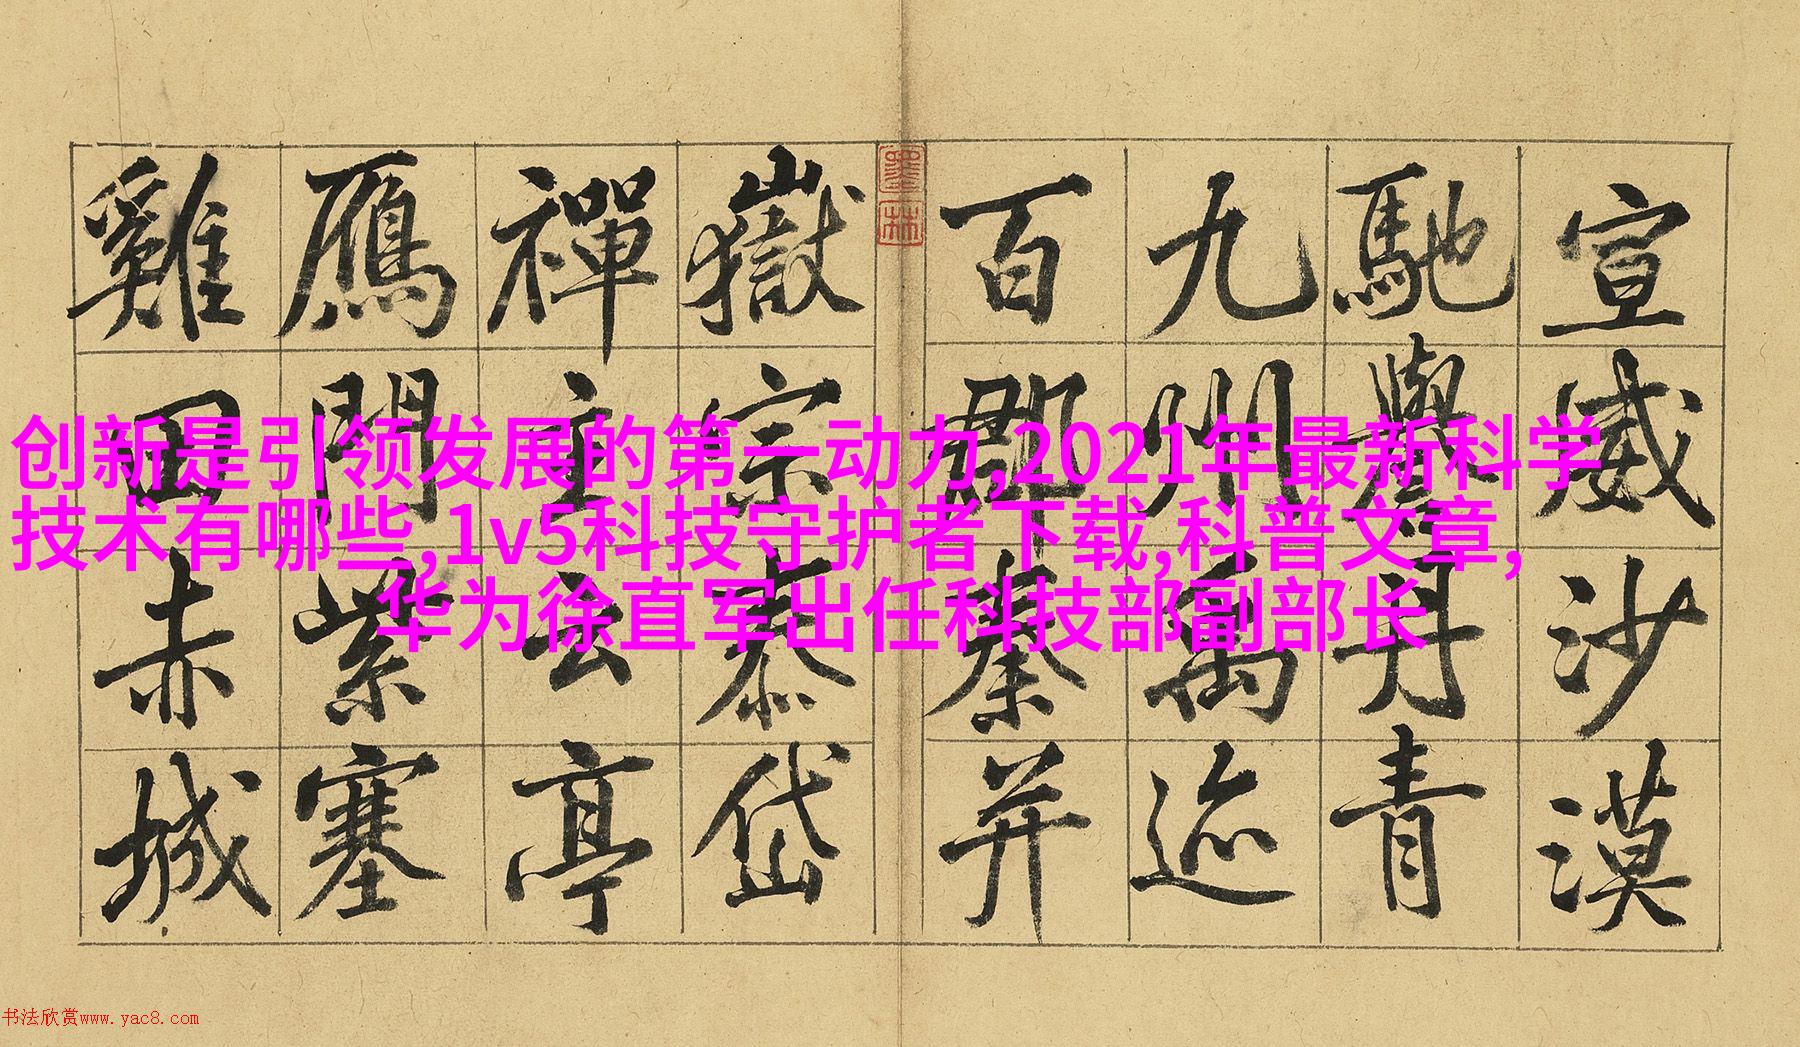 宣威沙漠
馳譽丹青
九州禹迹
百郡秦并
嶽宗泰岱
禪主云亭
鴈門紫塞
雞田赤城
墨林
创新是引领发展的第一动力,2021年最新科学
技术有哪些,1v5科技守护者下载,科普文章,
华为徐直军出任科技部副部长
书法欣赏www.yac8.com